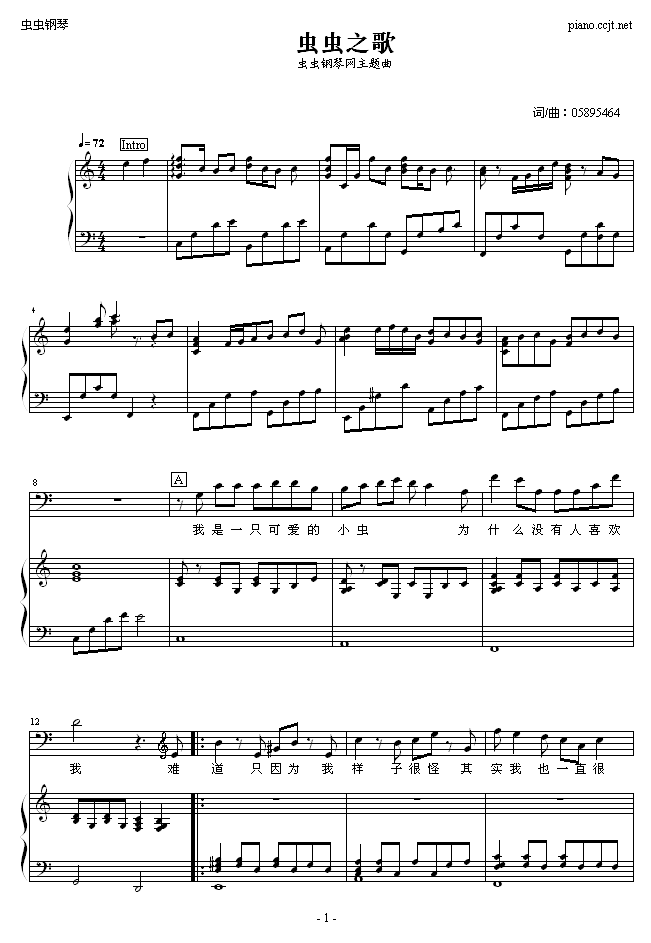 虫虫钢琴
piano.ccjt.net
虫虫之歌
虫虫钢琴网主题曲
词/曲：05895464
♩= 72
Intro
4
8
A
我是一只可爱的 小虫 为 什么没有人喜欢
12
我 难 道 只因为我 样 子很怪 其 实我也一直很
- 1 -